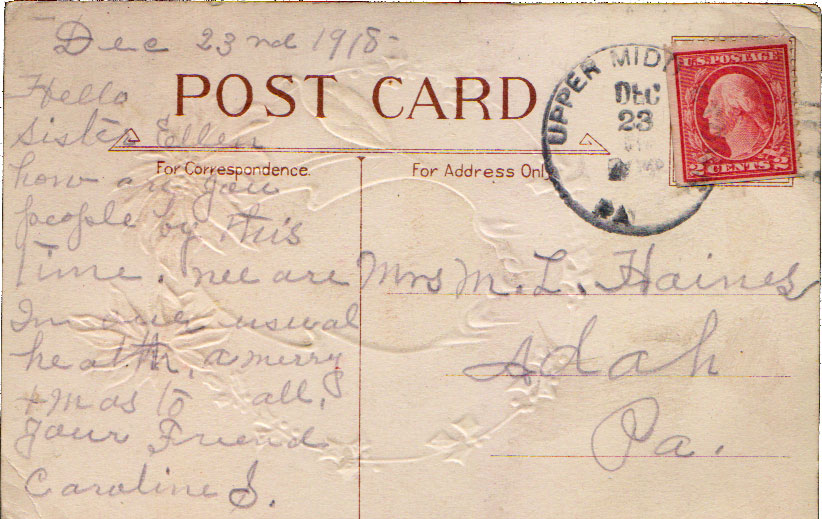 Dec 23rd 1918
POST CARD
For Correspondence.
For Address Only
Hello
Sister Ellen
how are you
people by this
time. we are
In our usual
health, a merry
xmas to all.
your Friend
Caroline S.
UPPER MIDD
DEC
23
PA
U.S. POSTAGE
2 CENTS 2
Mrs M. L. Haines
Adah
Pa.